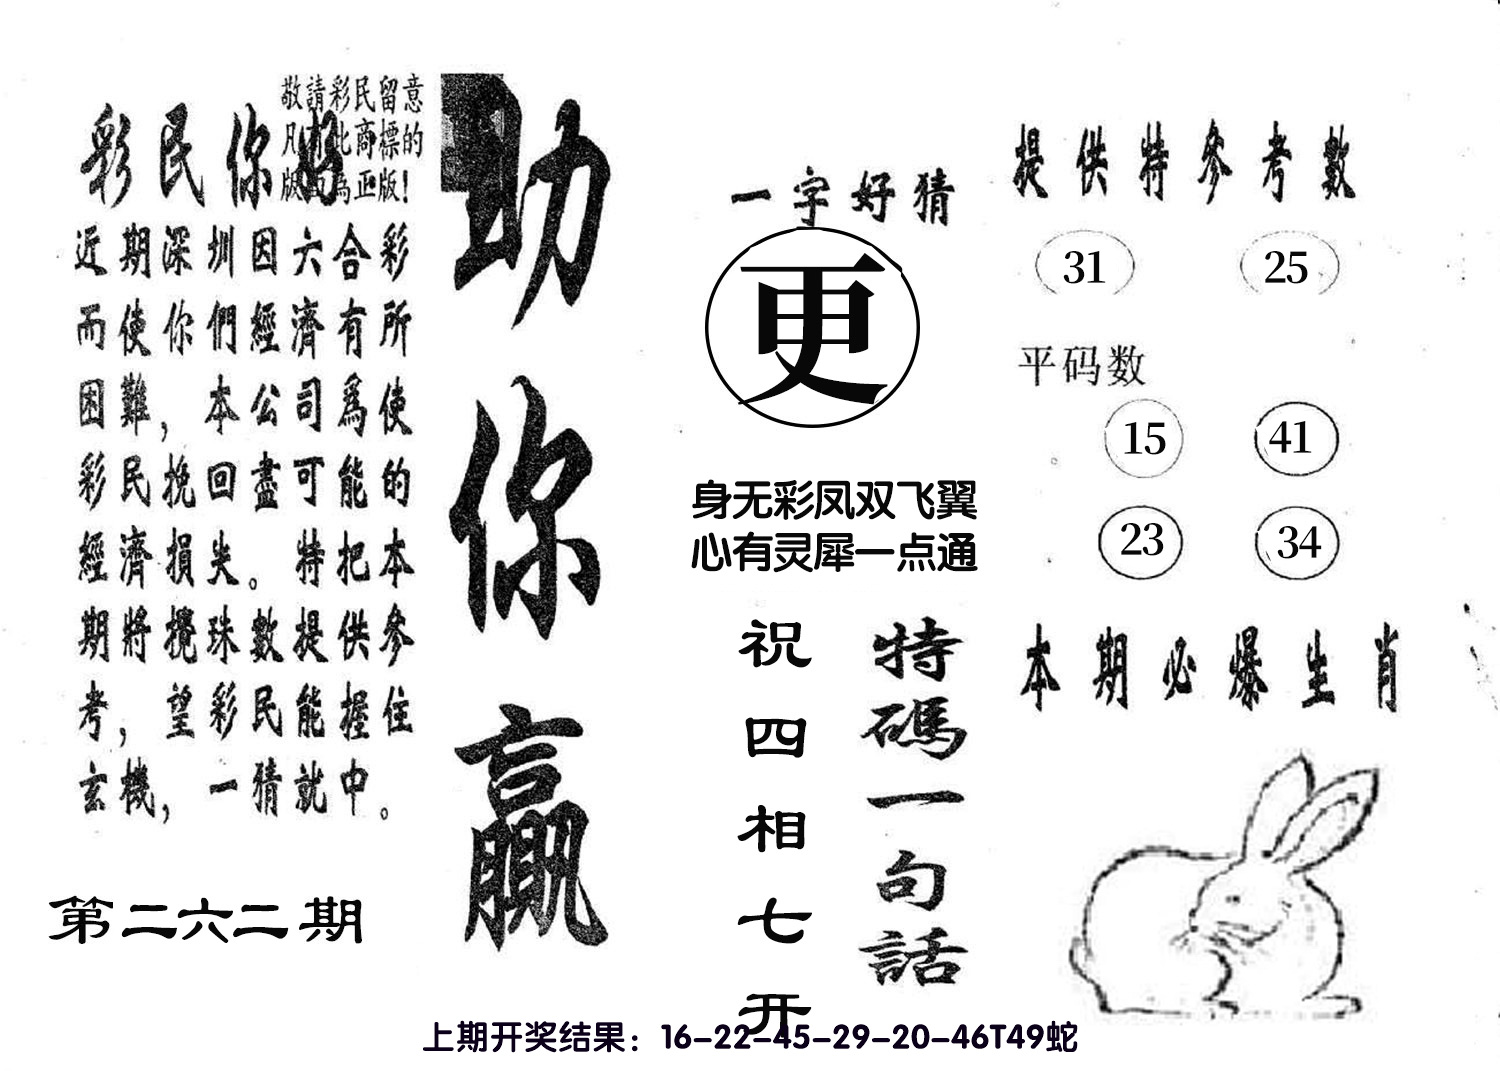 敬請彩民留意
凡有此商標的
版面為正版！
彩民你好
近期深圳因六合彩
而使你們經濟有所
困難，本公司爲使
彩民挽回盡可能的
經濟損失。特把本
期將攪珠數提供參
考，望彩民能握住
玄機，一猜就中。
第二六二期
助你贏
一字好猜
更
身无彩凤双飞翼
心有灵犀一点通
特碼一句話
祝四相七开
提供特參考數
31 25
平码数
15 41
23 34
本期必爆生肖
上期开奖结果：16-22-45-29-20-46T49蛇